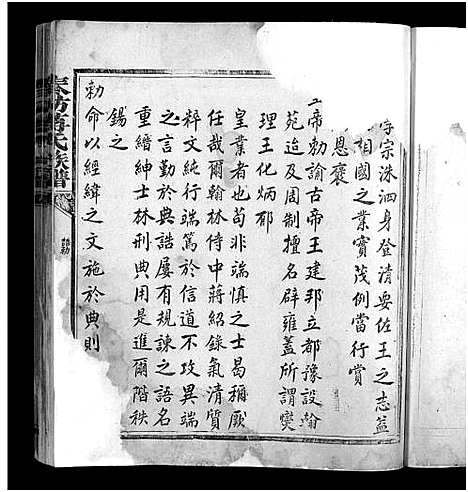 字宗洙泗身登清要佐王之志益
相國之業實茂例當行賞
恩褒
帝勅諭古帝王建邦立都豫設翰
苑迨及周制擅名辟雍蓋所謂燮
理王化炳郁
皇業者也苟非端慎之士曷稱厥
任哉爾翰林侍中蔣紹錄氣清質
粹文純行端篤於信道不攻異端
之言勤於典誥屢有規諫之語名
重縉紳士林刑典用是進爾階秩
錫之
勅命以經緯之文施於典則
蔣氏族譜
誥勅